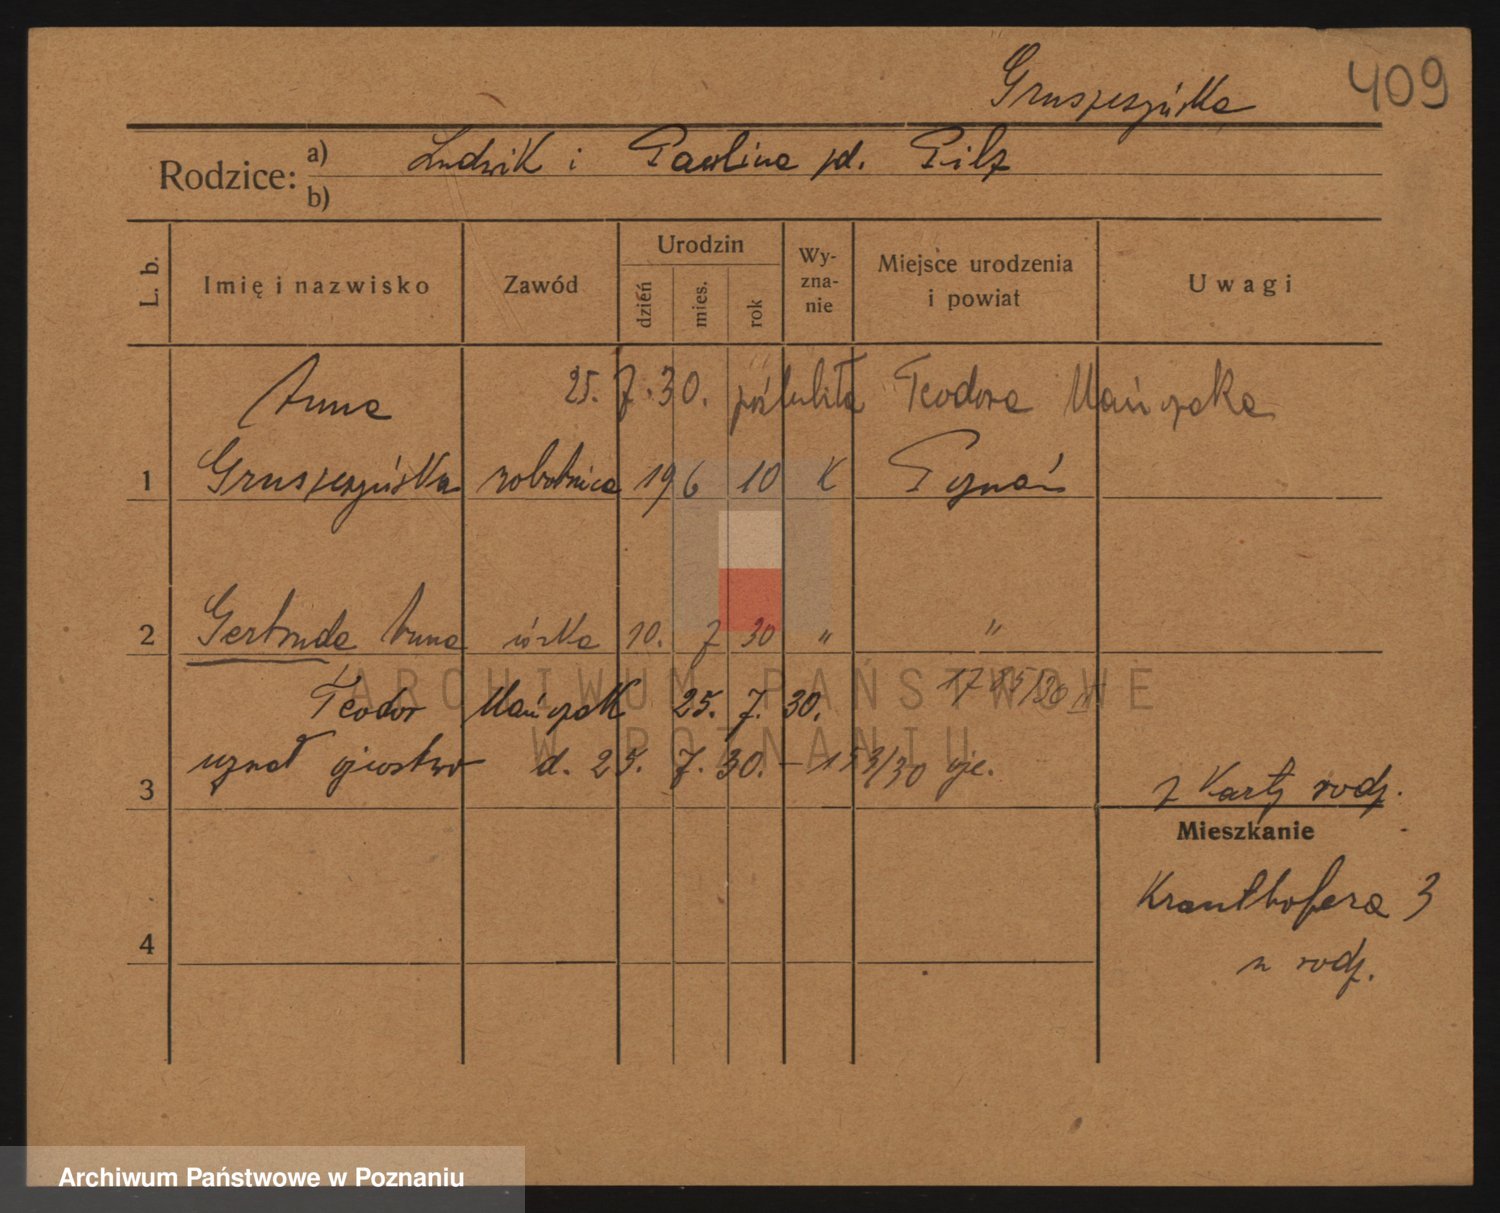 409
Gruszczyńska
Rodzice: a) Ludwik i Paulina zd. Pilz
b)
L. b. Imię i nazwisko Zawód Urodzin dzień mies. rok Wy-zna-nie Miejsce urodzenia i powiat Uwagi
Anna 25. 7. 30. poślubiła Teodora Mańczaka
1 Gruszczyńska robotnica 19 6 10 K Poznań
2 Gertruda Anna córka 10. 7 30 " "
Teodor Mańczak 25. 7. 30.
3 uznał ojcostwo d. 25. 7. 30. – 153/30 oje.
z Karty rodz.
Mieszkanie
Krauthofera 3
u rodz.
4
ARCHIWUM PAŃSTWOWE
W POZNANIU
Archiwum Państwowe w Poznaniu